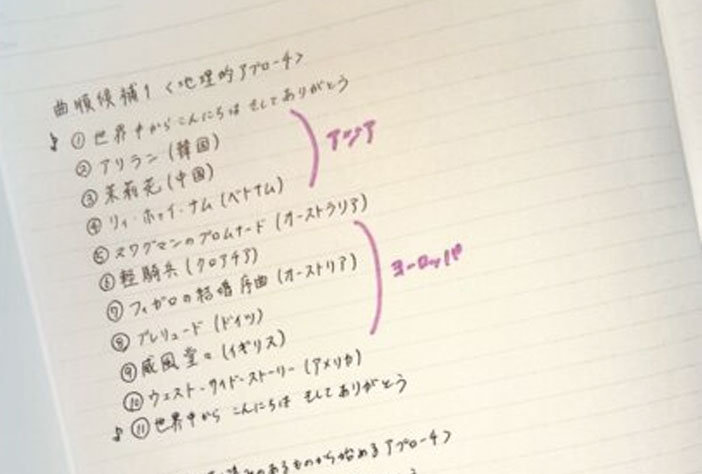 曲順候補1 <地理的アプローチ>
♪ ① 世界中からこんにちは そしてありがとう
② アリラン (韓国)
③ 茉莉花 (中国)
アジア
④ リィ・ホゥイ・ナム (ベトナム)
⑤ スワグマンのプロムナード (オーストラリア)
⑥ 軽騎兵 (クロアチア)
⑦ フィガロの結婚序曲 (オーストリア)
ヨーロッパ
⑧ プレリュード (ドイツ)
⑨ 威風堂々 (イギリス)
⑩ ウェスト・サイド・ストーリー (アメリカ)
♪ ⑪ 世界中から こんにちは そしてありがとう
のあるものから始めるアプローチ>